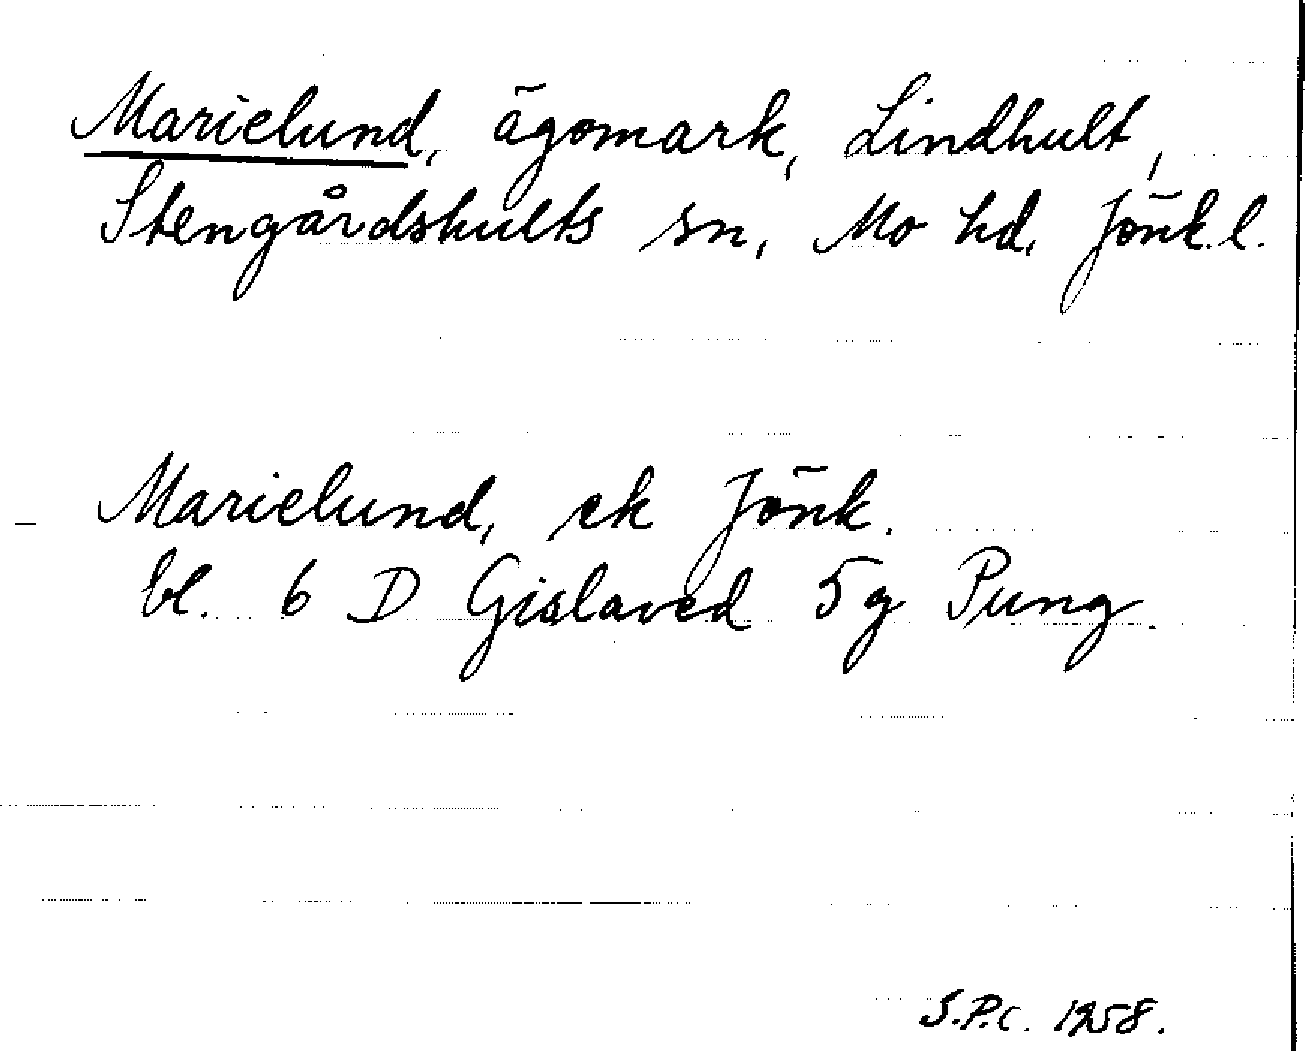 Marielund, ägomark, Lindhult,
Stengårdshults sn, Mo hd, Jönk.l.
Marielund, ek Jönk.
bl. 6 D Gislaved 5g Pung.
S.P.C. 1958.